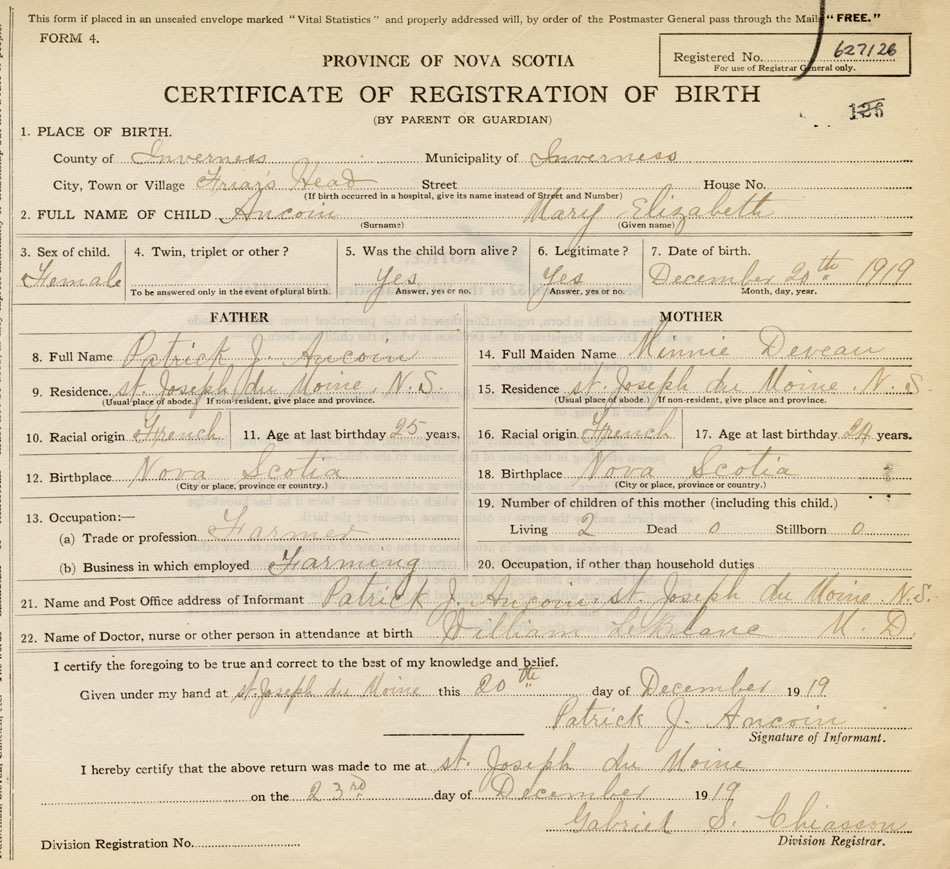 This form if placed in an unsealed envelope marked "Vital Statistics" and properly addressed will, by order of the Postmaster General pass through the Mails "FREE."
FORM 4.
PROVINCE OF NOVA SCOTIA
Registered No. 627126
For use of Registrar General only.
CERTIFICATE OF REGISTRATION OF BIRTH
(BY PARENT OR GUARDIAN)
126
1. PLACE OF BIRTH.
County of Inverness Municipality of Inverness
City, Town or Village Friar's Head Street House No.
(If birth occurred in a hospital, give its name instead of Street and Number)
2. FULL NAME OF CHILD Aucoin Mary Elizabeth
(Surname) (Given name)
3. Sex of child. 4. Twin, triplet or other? 5. Was the child born alive? 6. Legitimate? 7. Date of birth.
Female Yes Yes December 20th 1919
To be answered only in the event of plural birth. Answer, yes or no. Answer, yes or no. Month, day, year.
FATHER MOTHER
8. Full Name Patrick J. Aucoin 14. Full Maiden Name Minnie Deveau
9. Residence. St. Joseph du Moine, N.S. 15. Residence St. Joseph du Moine, N.S.
(Usual place of abode. If non-resident, give place and province. (Usual place of abode. If non-resident, give place and province.
10. Racial origin French 11. Age at last birthday 25 years. 16. Racial origin French 17. Age at last birthday 24 years.
12. Birthplace Nova Scotia 18. Birthplace Nova Scotia
(City or place, province or country.) (City or place, province or country.)
19. Number of children of this mother (including this child.)
13. Occupation:—
Living 2 Dead 0 Stillborn 0
(a) Trade or profession Farmer
(b) Business in which employed Farming 20. Occupation, if other than household duties
21. Name and Post Office address of Informant Patrick J. Aucoin, St. Joseph du Moine, N.S.
22. Name of Doctor, nurse or other person in attendance at birth William LeBlanc M. D.
I certify the foregoing to be true and correct to the best of my knowledge and belief.
Given under my hand at St. Joseph du Moine this 20th day of December 1919
Patrick J. Aucoin
Signature of Informant.
I hereby certify that the above return was made to me at St. Joseph du Moine
on the 23rd day of December 1919
Gabriel S. Chiasson
Division Registrar.
Division Registration No.